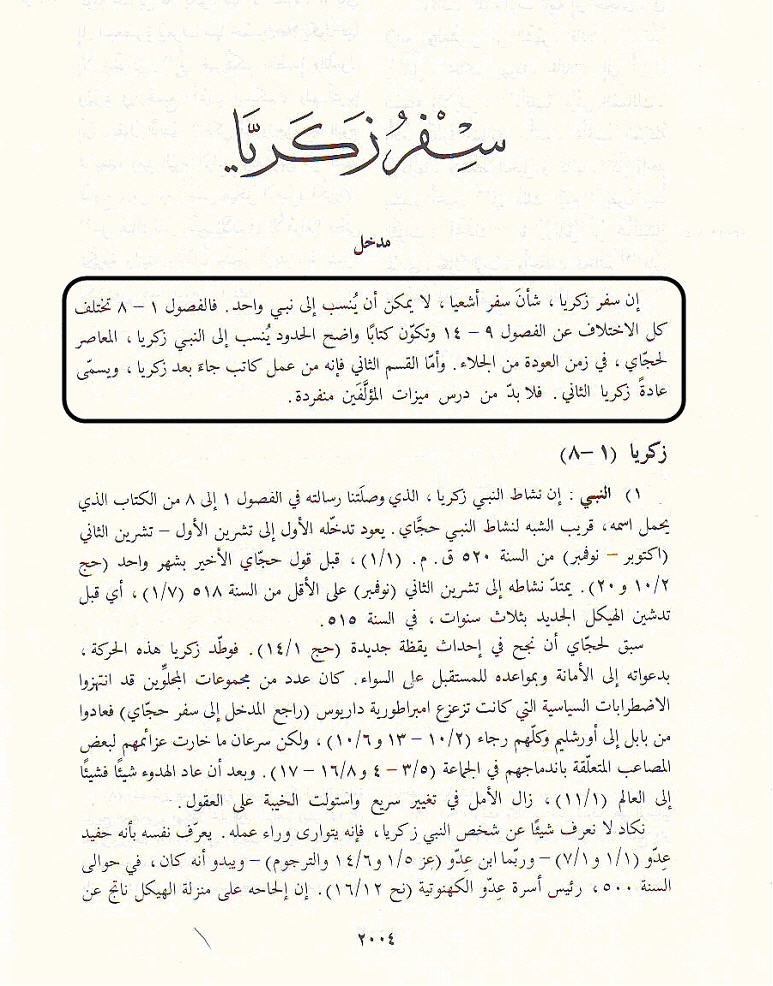 سِفْرُ زَكَرِيَّا
مدخل
إن سفر زكريا ، شأنَ سفر أشعيا ، لا يمكن أن يُنسب إلى نبي واحد. فالفصول ١ – ٨ تختلف
كل الاختلاف عن الفصول ٩ – ١٤ وتكوّن كتابًا واضح الحدود يُنسب إلى النبي زكريا ، المعاصر
لحجّاي ، في زمن العودة من الجلاء. وأمّا القسم الثاني فإنه من عمل كاتب جاءَ بعد زكريا ، ويسمّى
عادةً زكريا الثاني. فلا بدّ من درس ميزات المؤلَّفَين منفردة.
زكريا (١ –٨)
١) النبي : إن نشاط النبي زكريا ، الذي وصلَتنا رسالته في الفصول ١ إلى ٨ من الكتاب الذي
يحمل اسمه، قريب الشبه لنشاط النبي حجَّاي. يعود تدخّله الأول إلى تشرين الأول – تشرين الثاني
(اكتوبر – نوفمبر) من السنة ٥٢٠ ق. م. (١/١) ، قبل قول حجّاي الأخير بشهر واحد (حج
١٠/٢ و ٢٠). يمتدّ نشاطه إلى تشرين الثاني (نوفمبر) على الأقل من السنة ٥١٨ (١/٧) ، أي قبل
تدشين الهيكل الجديد بثلاث سنوات ، في السنة ٥١٥.
سبق لحجّاي أن نجح في إحداث يقظة جديدة (حج ١٤/١). فوطّد زكريا هذه الحركة ،
بدعواته إلى الأمانة وبمواعده للمستقبل على السواء. كان عدد من مجموعات المجلوِّين قد انتهزوا
الاضطرابات السياسية التي كانت تزعزع امبراطورية داريوس (راجع المدخل إلى سفر حجّاي) فعادوا
من بابل إلى أورشليم وكلّهم رجاء (١٠/٢ – ١٣ و ١٠/٦) ، ولكن سرعان ما خارت عزائمهم لبعض
المصاعب المتعلّقة باندماجهم في الجماعة (٣/٥ – ٤ و ١٦/٨ – ١٧). وبعد أن عاد الهدوء شيئًا فشيئًا
إلى العالم (١١/١) ، زال الأمل في تغيير سريع واستولت الخيبة على العقول.
نكاد لا نعرف شيئًا عن شخص النبي زكريا، فإنه يتوارى وراء عمله. يعرّف نفسه بأنه حفيد
عِدّو (١/١ و ٧/١) – وربّما ابن عِدّو (عز ١/٥ و ١٤/٦ والترجوم) – ويبدو أنه كان ، في حوالى
السنة ٥٠٠ ، رئيس أسرة عِدّو الكهنوتية (نح ١٦/١٢). إن إلحاحه على منزلة الهيكل ناتج عن
٢٠٠٤